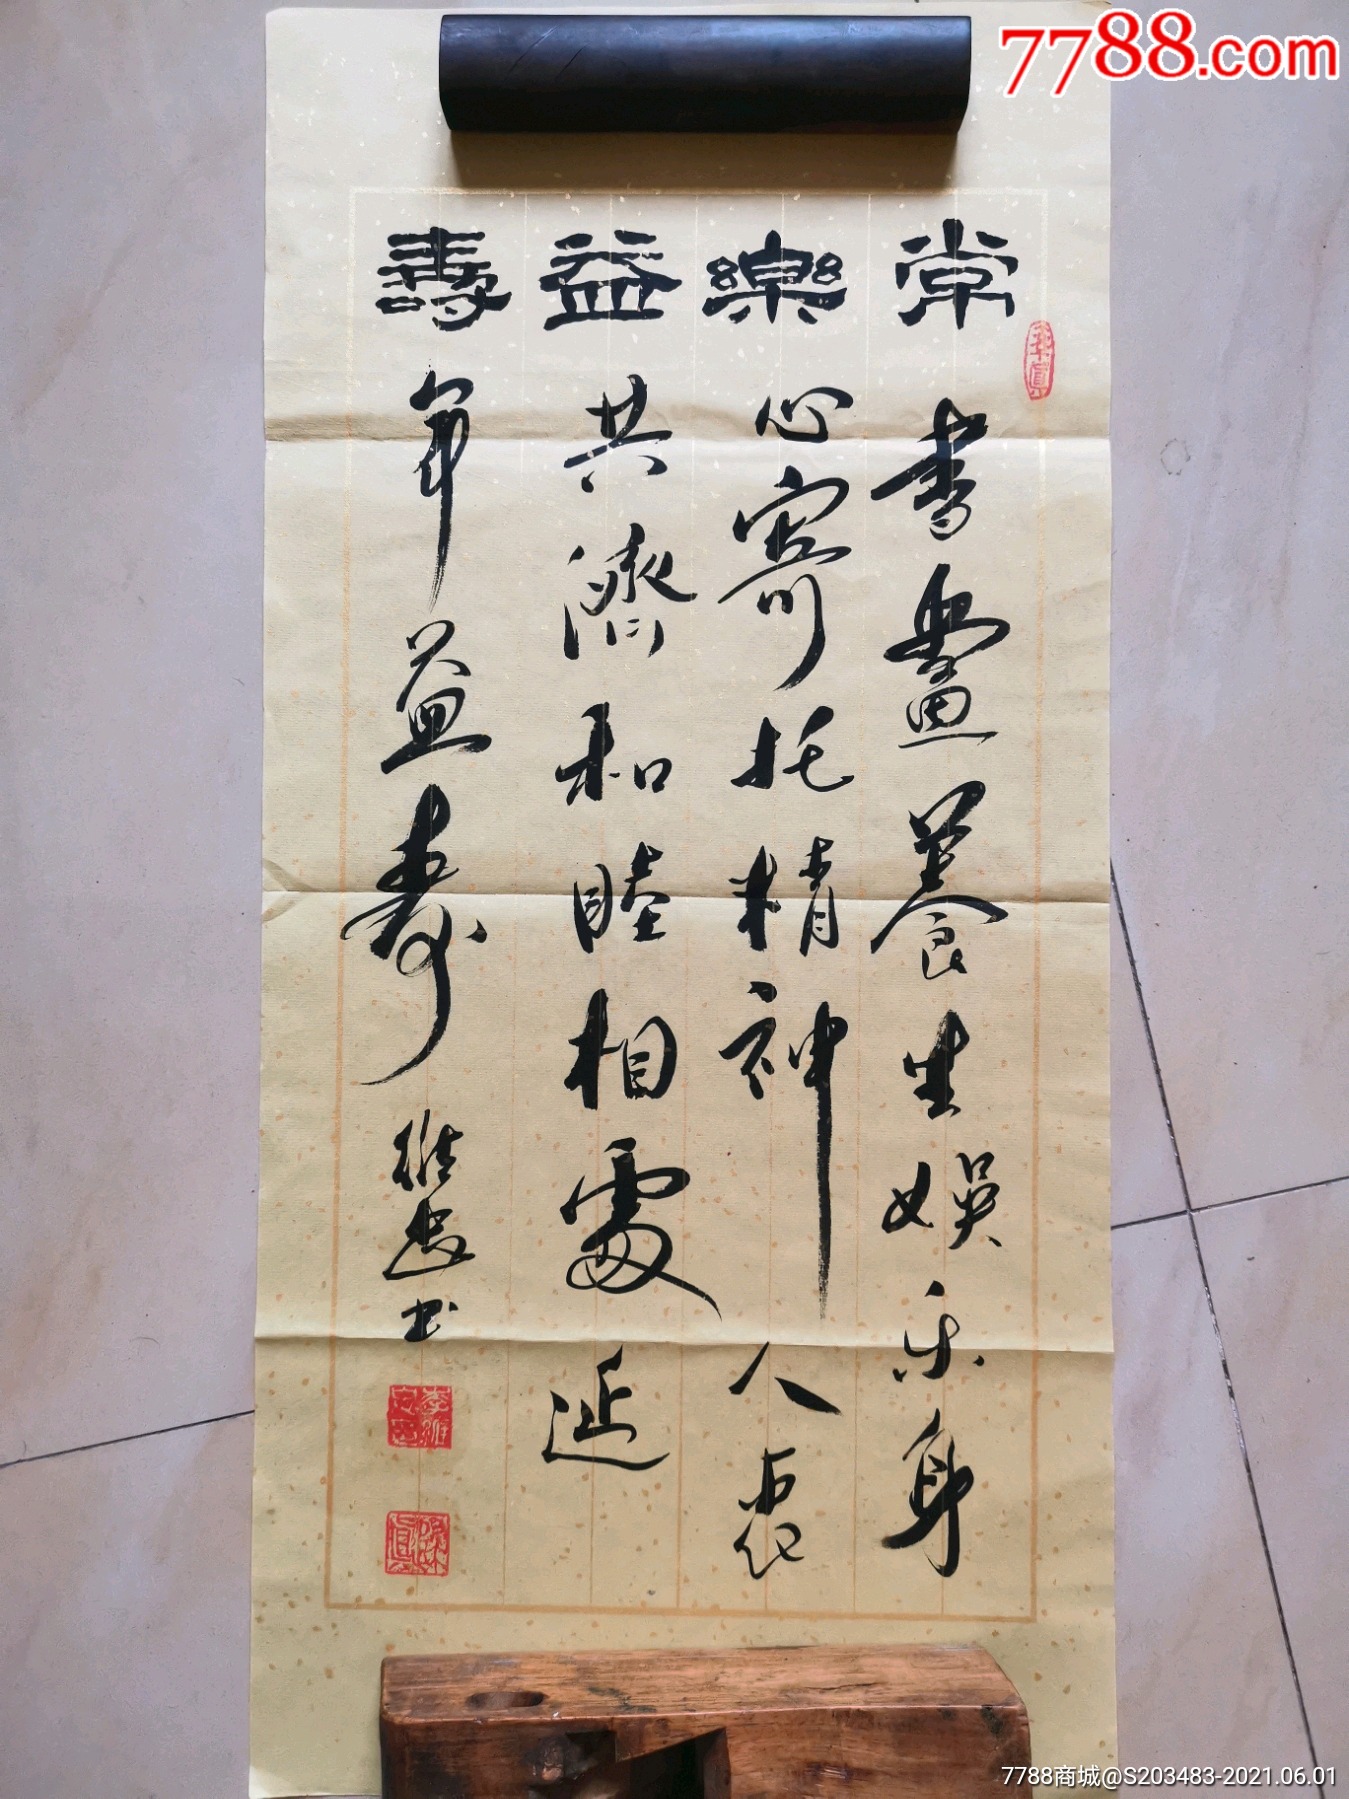 7788.com
常樂益壽
书畫養生娱乐身
心寄托精神人衷
共濟和睦相處延
年益寿維忠书
李維忠印
7788商城@S203483-2021.06.01